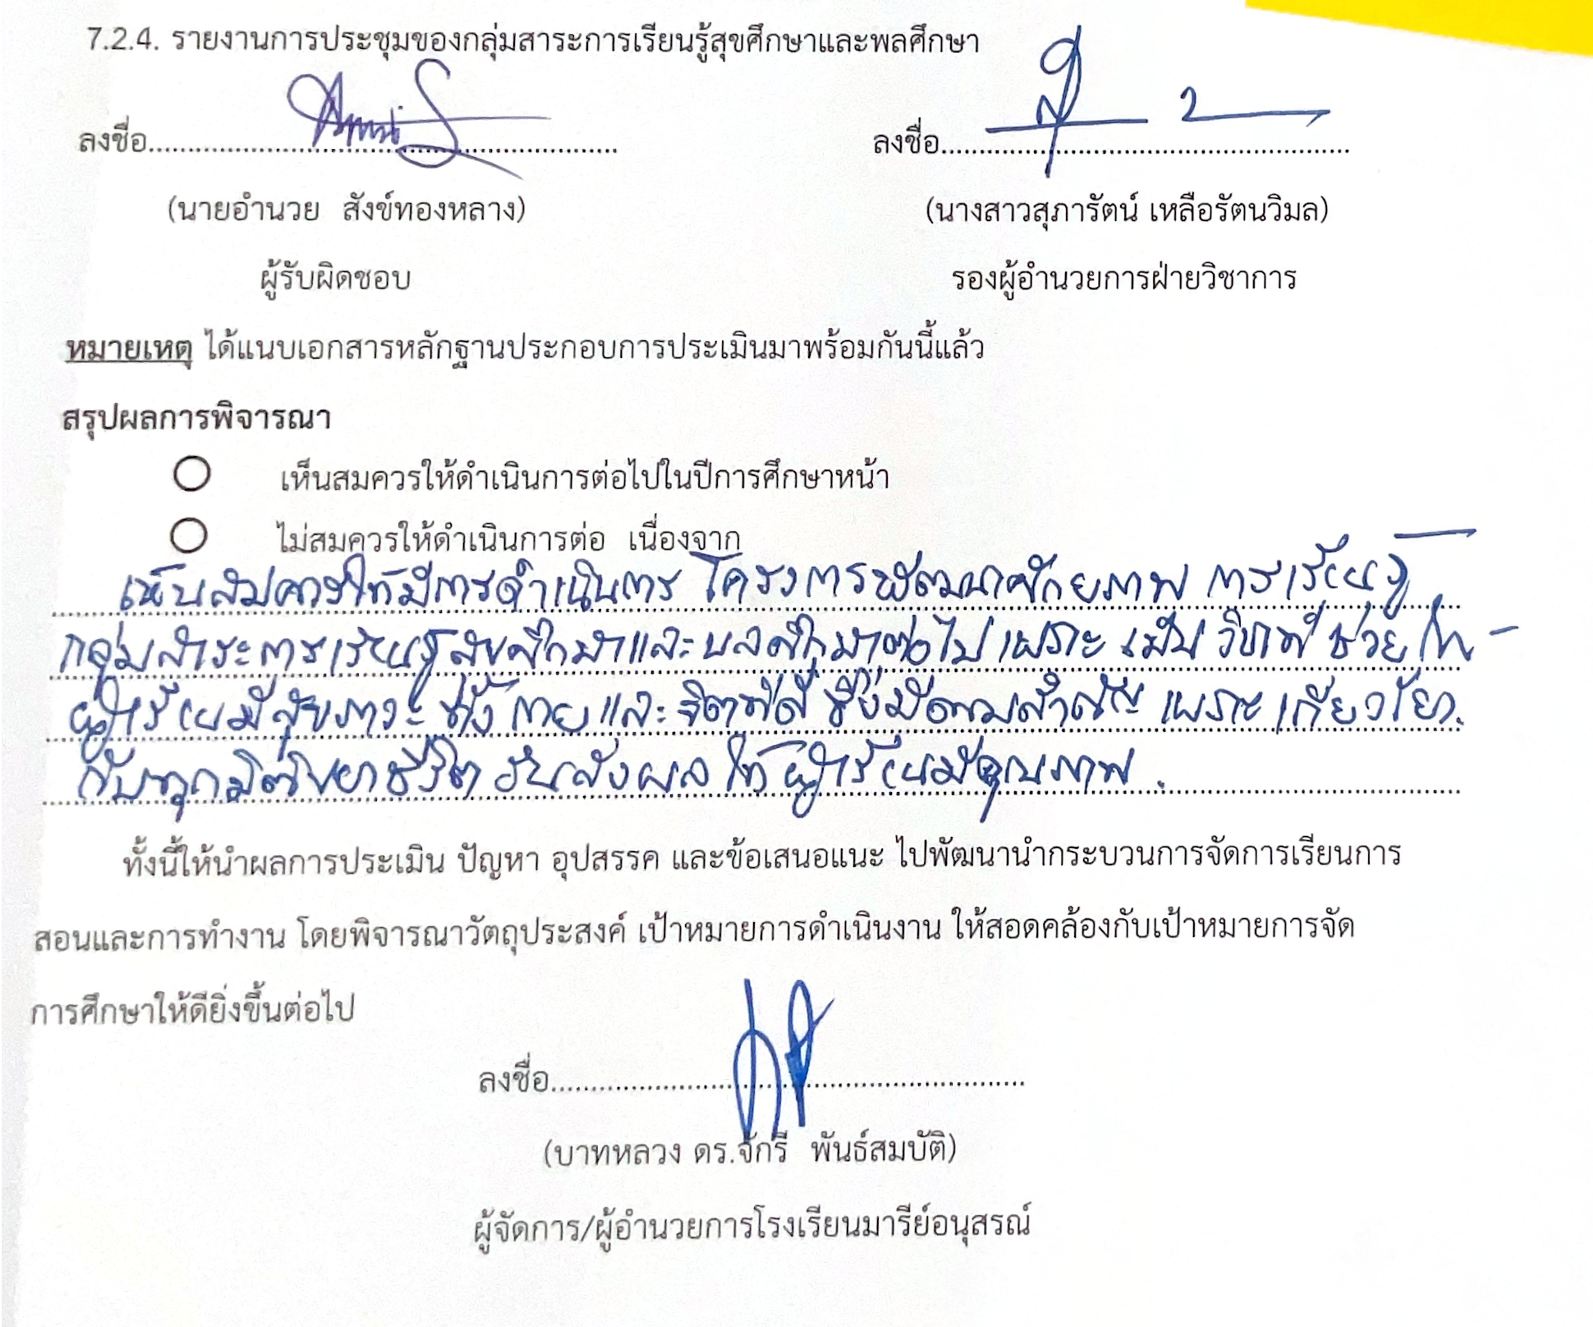 7.2.4. รายงานการประชุมของกลุ่มสาระการเรียนรู้สุขศึกษาและพลศึกษา
ลงชื่อ.......................................................... ลงชื่อ..........................................................
(นายอำนวย สังข์ทองหลาง) (นางสาวสุภารัตน์ เหลือรัตนวิมล)
ผู้รับผิดชอบ รองผู้อำนวยการฝ่ายวิชาการ
หมายเหตุ ได้แนบเอกสารหลักฐานประกอบการประเมินมาพร้อมกันนี้แล้ว
สรุปผลการพิจารณา
เห็นสมควรให้ดำเนินการต่อไปในปีการศึกษาหน้า
ไม่สมควรให้ดำเนินการต่อ เนื่องจาก
เห็นสมควรให้มีการดำเนินการ โครงการพัฒนาศักยภาพ การเรียนรู้
กลุ่มสาระการเรียนรู้สุขศึกษาและพลศึกษาต่อไป เพราะ เป็น วิชาที่ ช่วย ให้
ผู้เรียนมีสุขภาวะ ทั้ง กาย และ จิตที่ดี ซึ่งมีความสำคัญ เพราะ เกี่ยวโยง
กับทุกมิติของชีวิต ส่งผล ให้ ผู้เรียนมีคุณภาพ.
ทั้งนี้ให้นำผลการประเมิน ปัญหา อุปสรรค และข้อเสนอแนะ ไปพัฒนานำกระบวนการจัดการเรียนการ
สอนและการทำงาน โดยพิจารณาวัตถุประสงค์ เป้าหมายการดำเนินงาน ให้สอดคล้องกับเป้าหมายการจัด
การศึกษาให้ดียิ่งขึ้นต่อไป
ลงชื่อ..........................................................
(บาทหลวง ดร.จักรี พันธ์สมบัติ)
ผู้จัดการ/ผู้อำนวยการโรงเรียนมารีย์อนุสรณ์